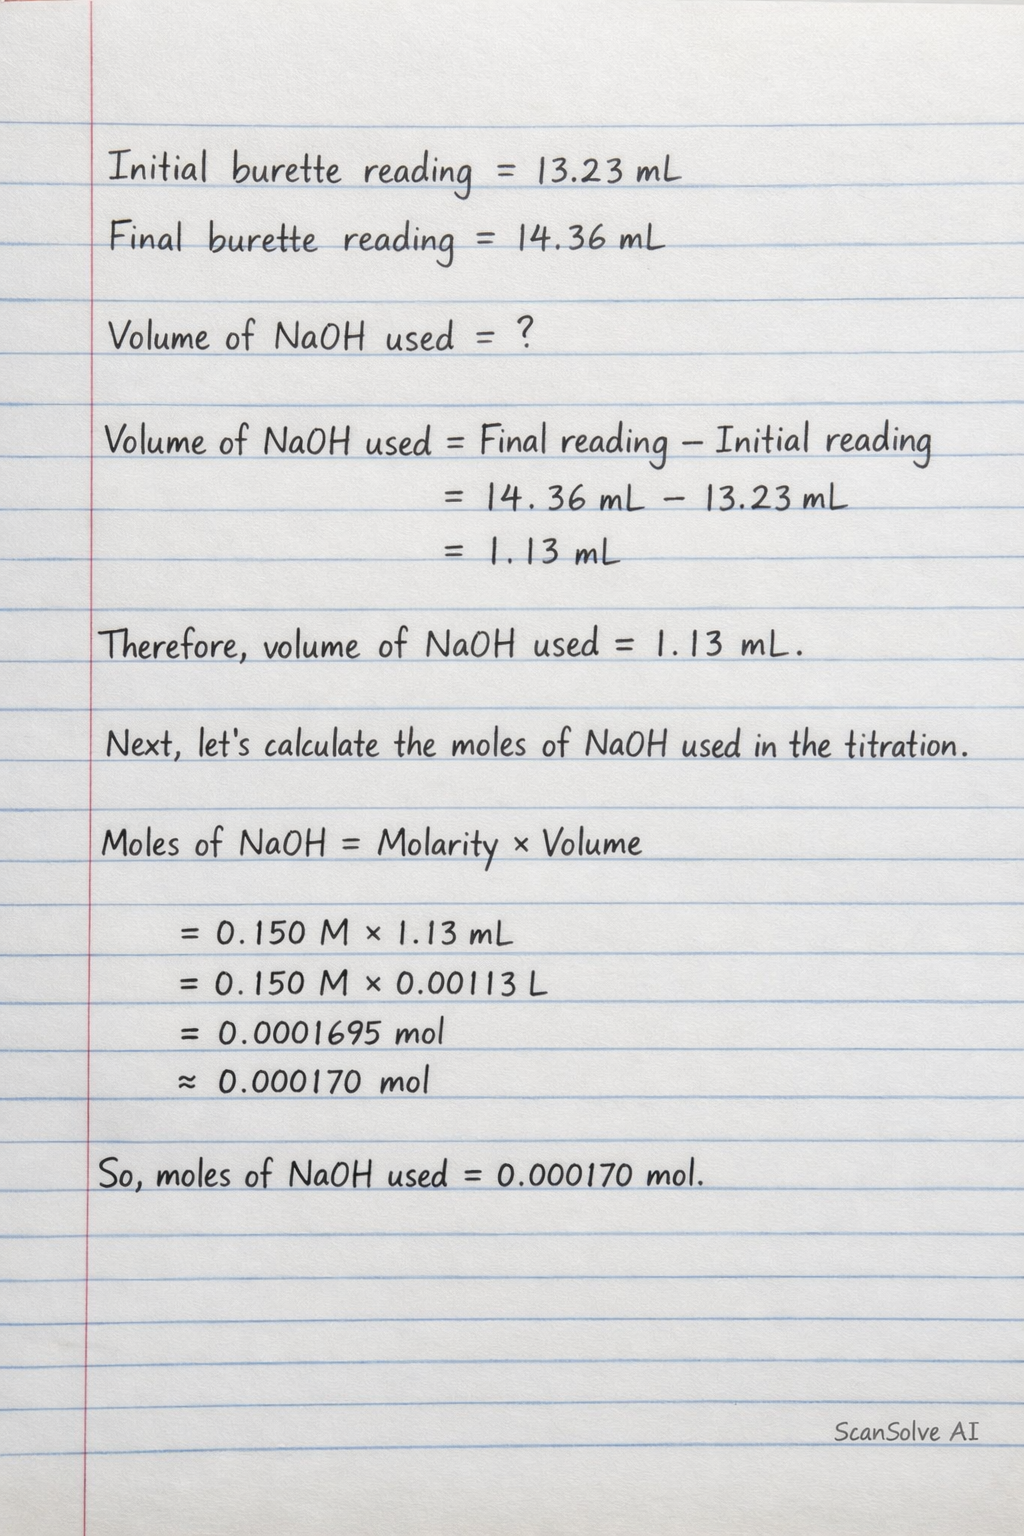 Initial burette reading = 13.23 mL
Final burette reading = 14.36 mL
Volume of NaOH used = ?
Volume of NaOH used = Final reading – Initial reading
= 14.36 mL – 13.23 mL
= 1.13 mL
Therefore, volume of NaOH used = 1.13 mL.
Next, let's calculate the moles of NaOH used in the titration.
Moles of NaOH = Molarity × Volume
= 0.150 M × 1.13 mL
= 0.150 M × 0.00113 L
= 0.0001695 mol
≈ 0.000170 mol
So, moles of NaOH used = 0.000170 mol.
ScanSolve AI